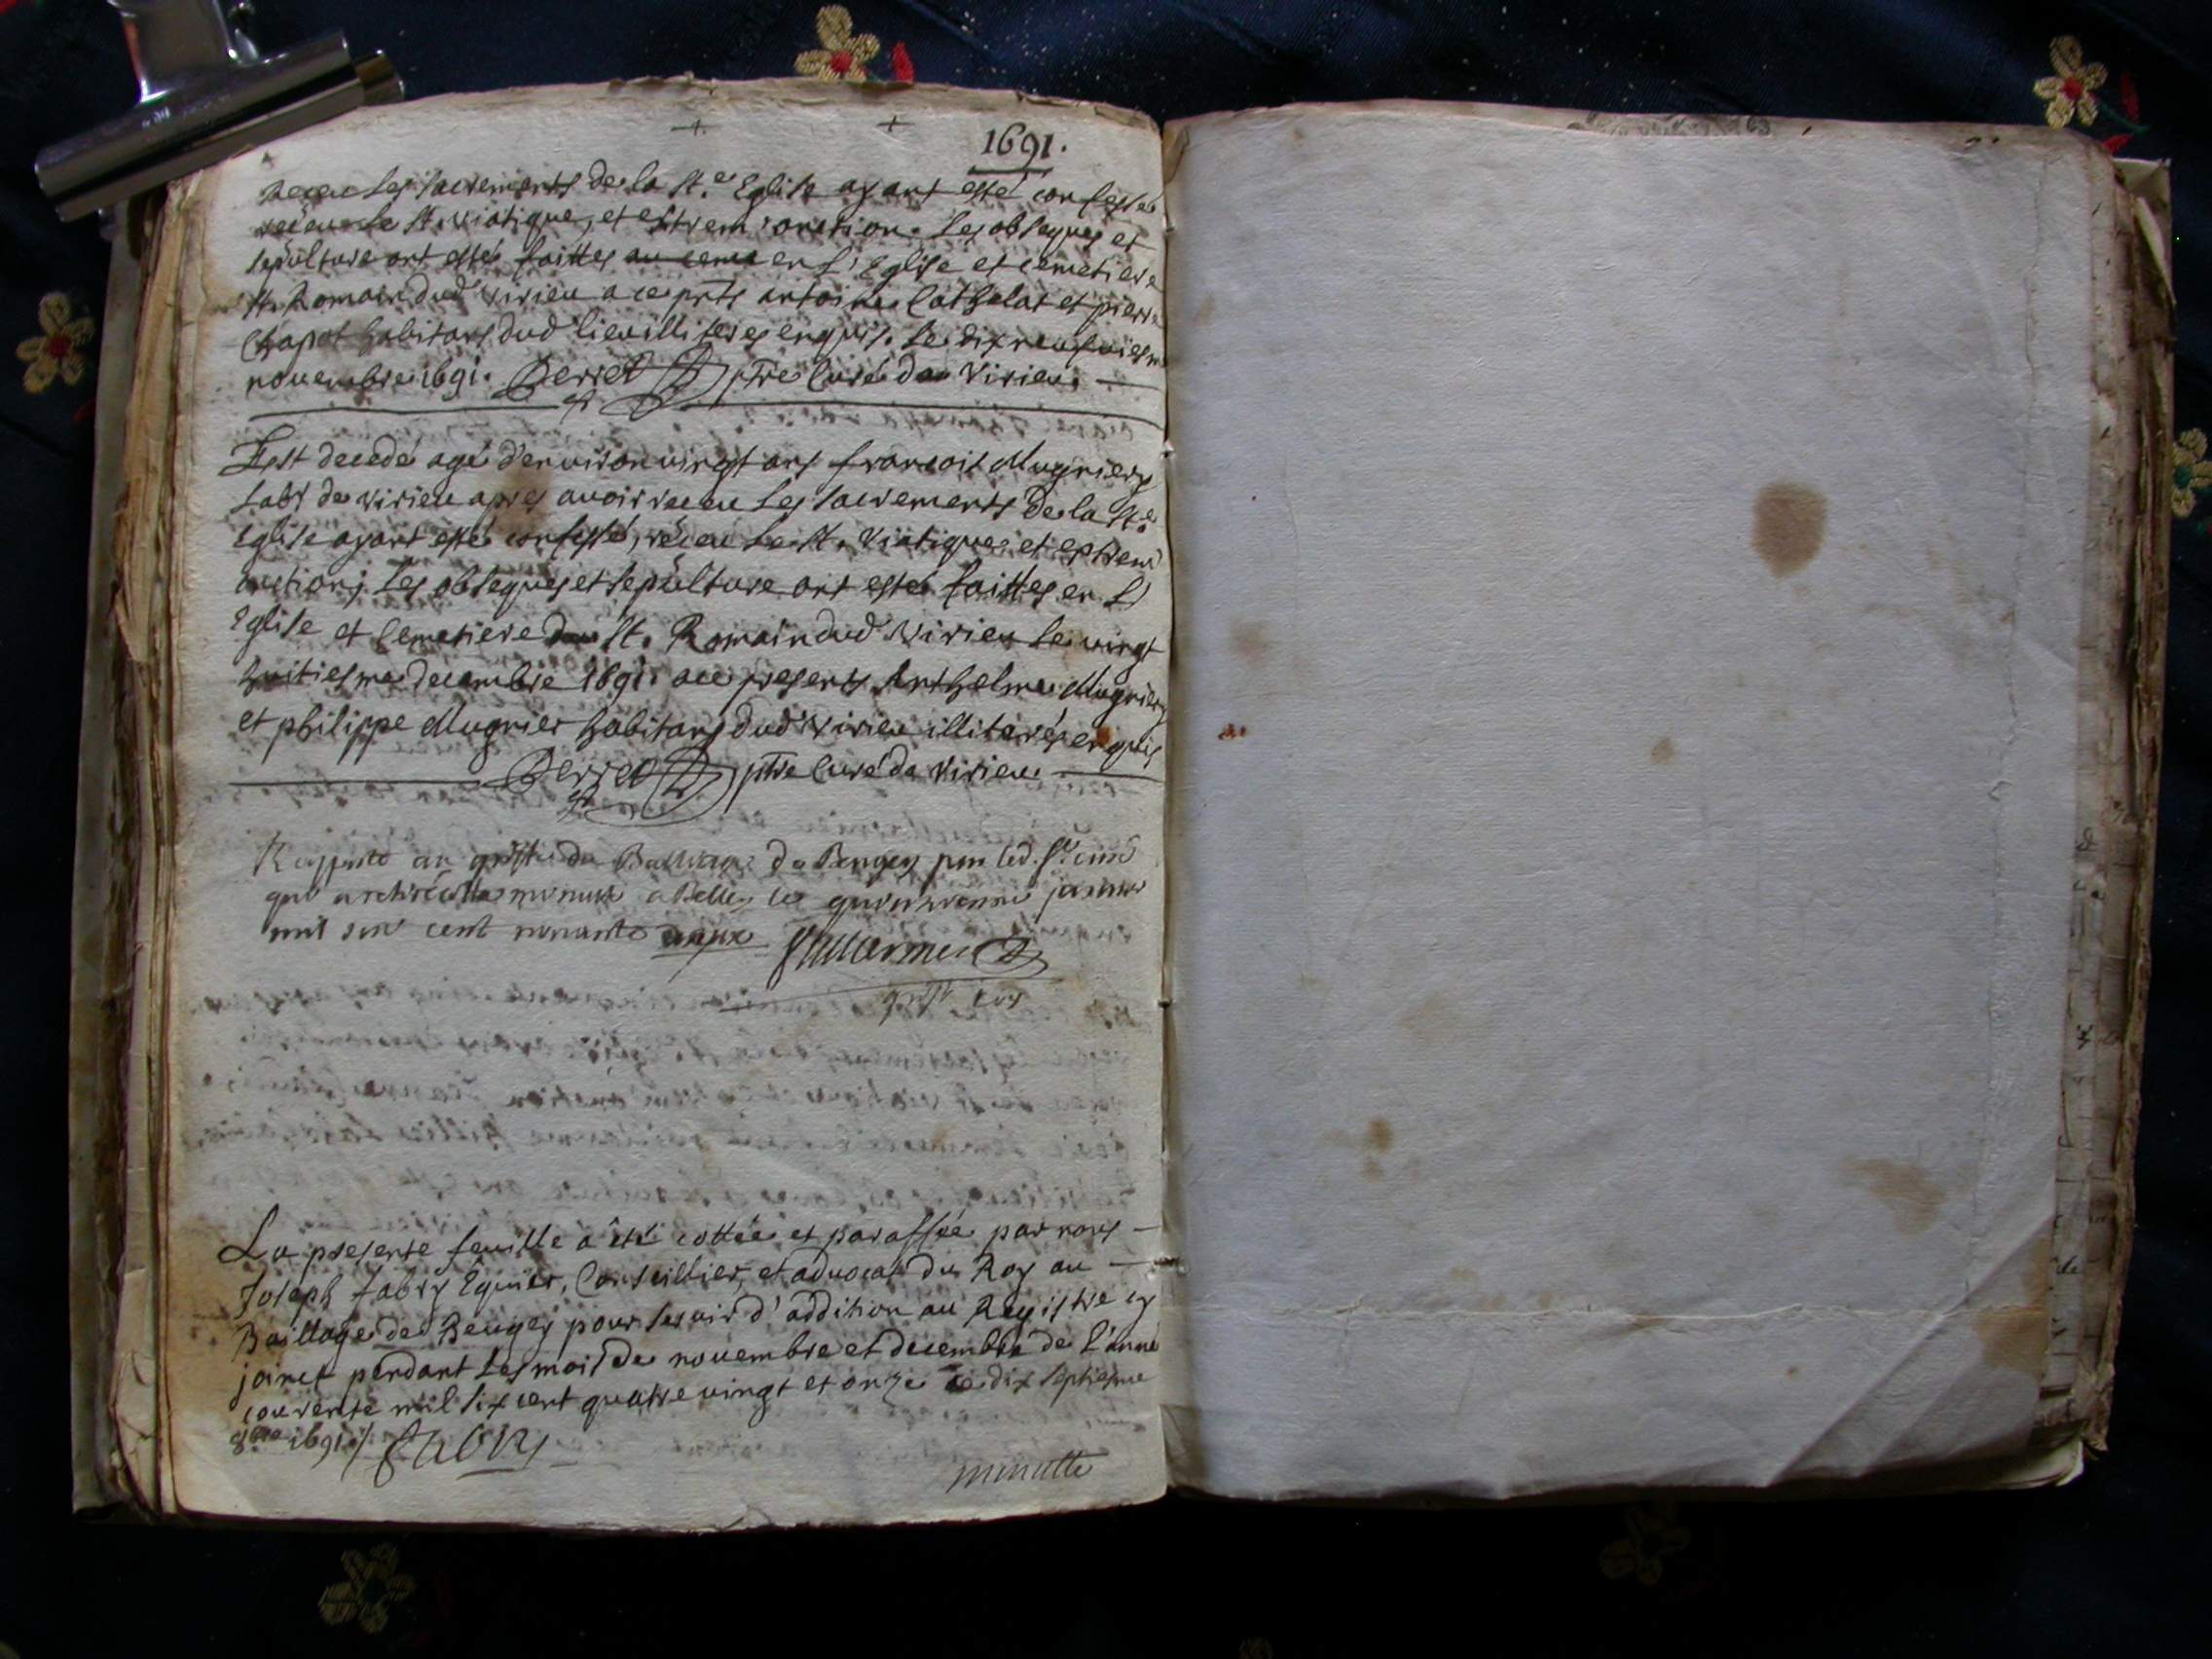 1691.
receu les sacrements de la Ste Eglise ayant esté confessé
receu le St. viatique, et extrem'onction. Les obseques et
sepulture ont estés faittes au ceme en l'Eglise et cemetiere
St. Romain dud Virieu a ce pnts antoine Cathelat et pierre
Chapot habitans dud lieu illiteres enquis. Le dix neufviesme
novembre 1691. Perret ptre Curé de Virieu.
Est decedé agé d'environ vingt ans francois Mugniery
labr de Virieu apres avoir receu les sacrements de la Ste
Eglise ayant esté confessé, receu le St. Viatique et extrem'
onction; Les obseques et sepulture ont estés faittes en l'
Eglise et Cemetiere de St. Romain dud Virieu le vingt
huitiesme decembre 1691. a ce presents Anthelme Mugniery
et philippe Mugnier habitans dud Virieu illiterés enquis
Perret ptre Curé de Virieu.
au greffe du Bailliage de Beugey par led. Sr curé
qui a retiré minute a Belley le janvier
mil six cent nonante deux
La presente feuille a été cottée et paraffée par nous
Joseph fabry Equier, Conseillier, et advocat du Roy au
Baillage de Beugey pour servir d'addition au Registre cy
joinct pendant les mois de novembre et decembre de l'année
courente mil six cent quatre vingt et onze ce dix septiesme
8bre 1691 ./. fabry
minutte